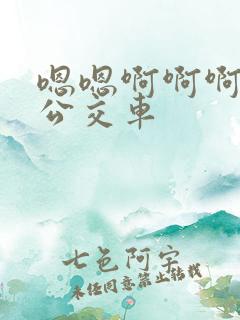 嗯嗯啊啊啊
公交车
七色阿字
未经同意禁止转载